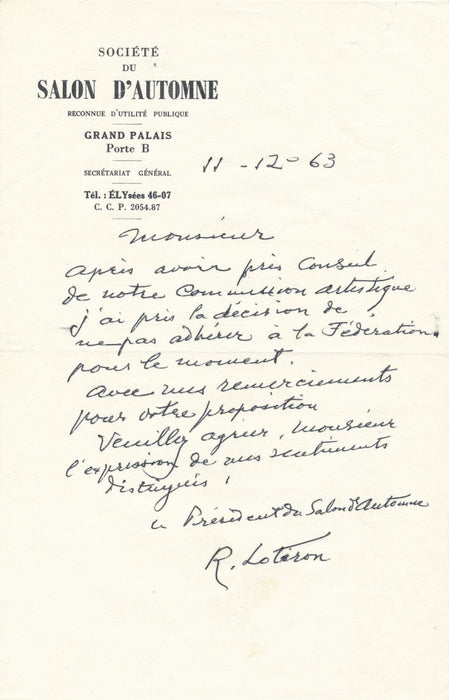 SOCIÉTÉ
DU
SALON D'AUTOMNE
RECONNUE D'UTILITÉ PUBLIQUE
GRAND PALAIS
Porte B
SECRÉTARIAT GÉNÉRAL
Tél. : ÉLYsées 46-07
C. C. P. 2054.87
11 - 12 - 63
Monsieur
Après avoir pris Conseil
de notre Commission artistique
j'ai pris la décision de
ne pas adhérer à la Fédération
pour le moment.
Avec mes remerciements
pour votre proposition
Veuillez agréer, Monsieur
l'expression de mes sentiments
distingués !
Le Président du Salon d'Automne
R. Lotiron